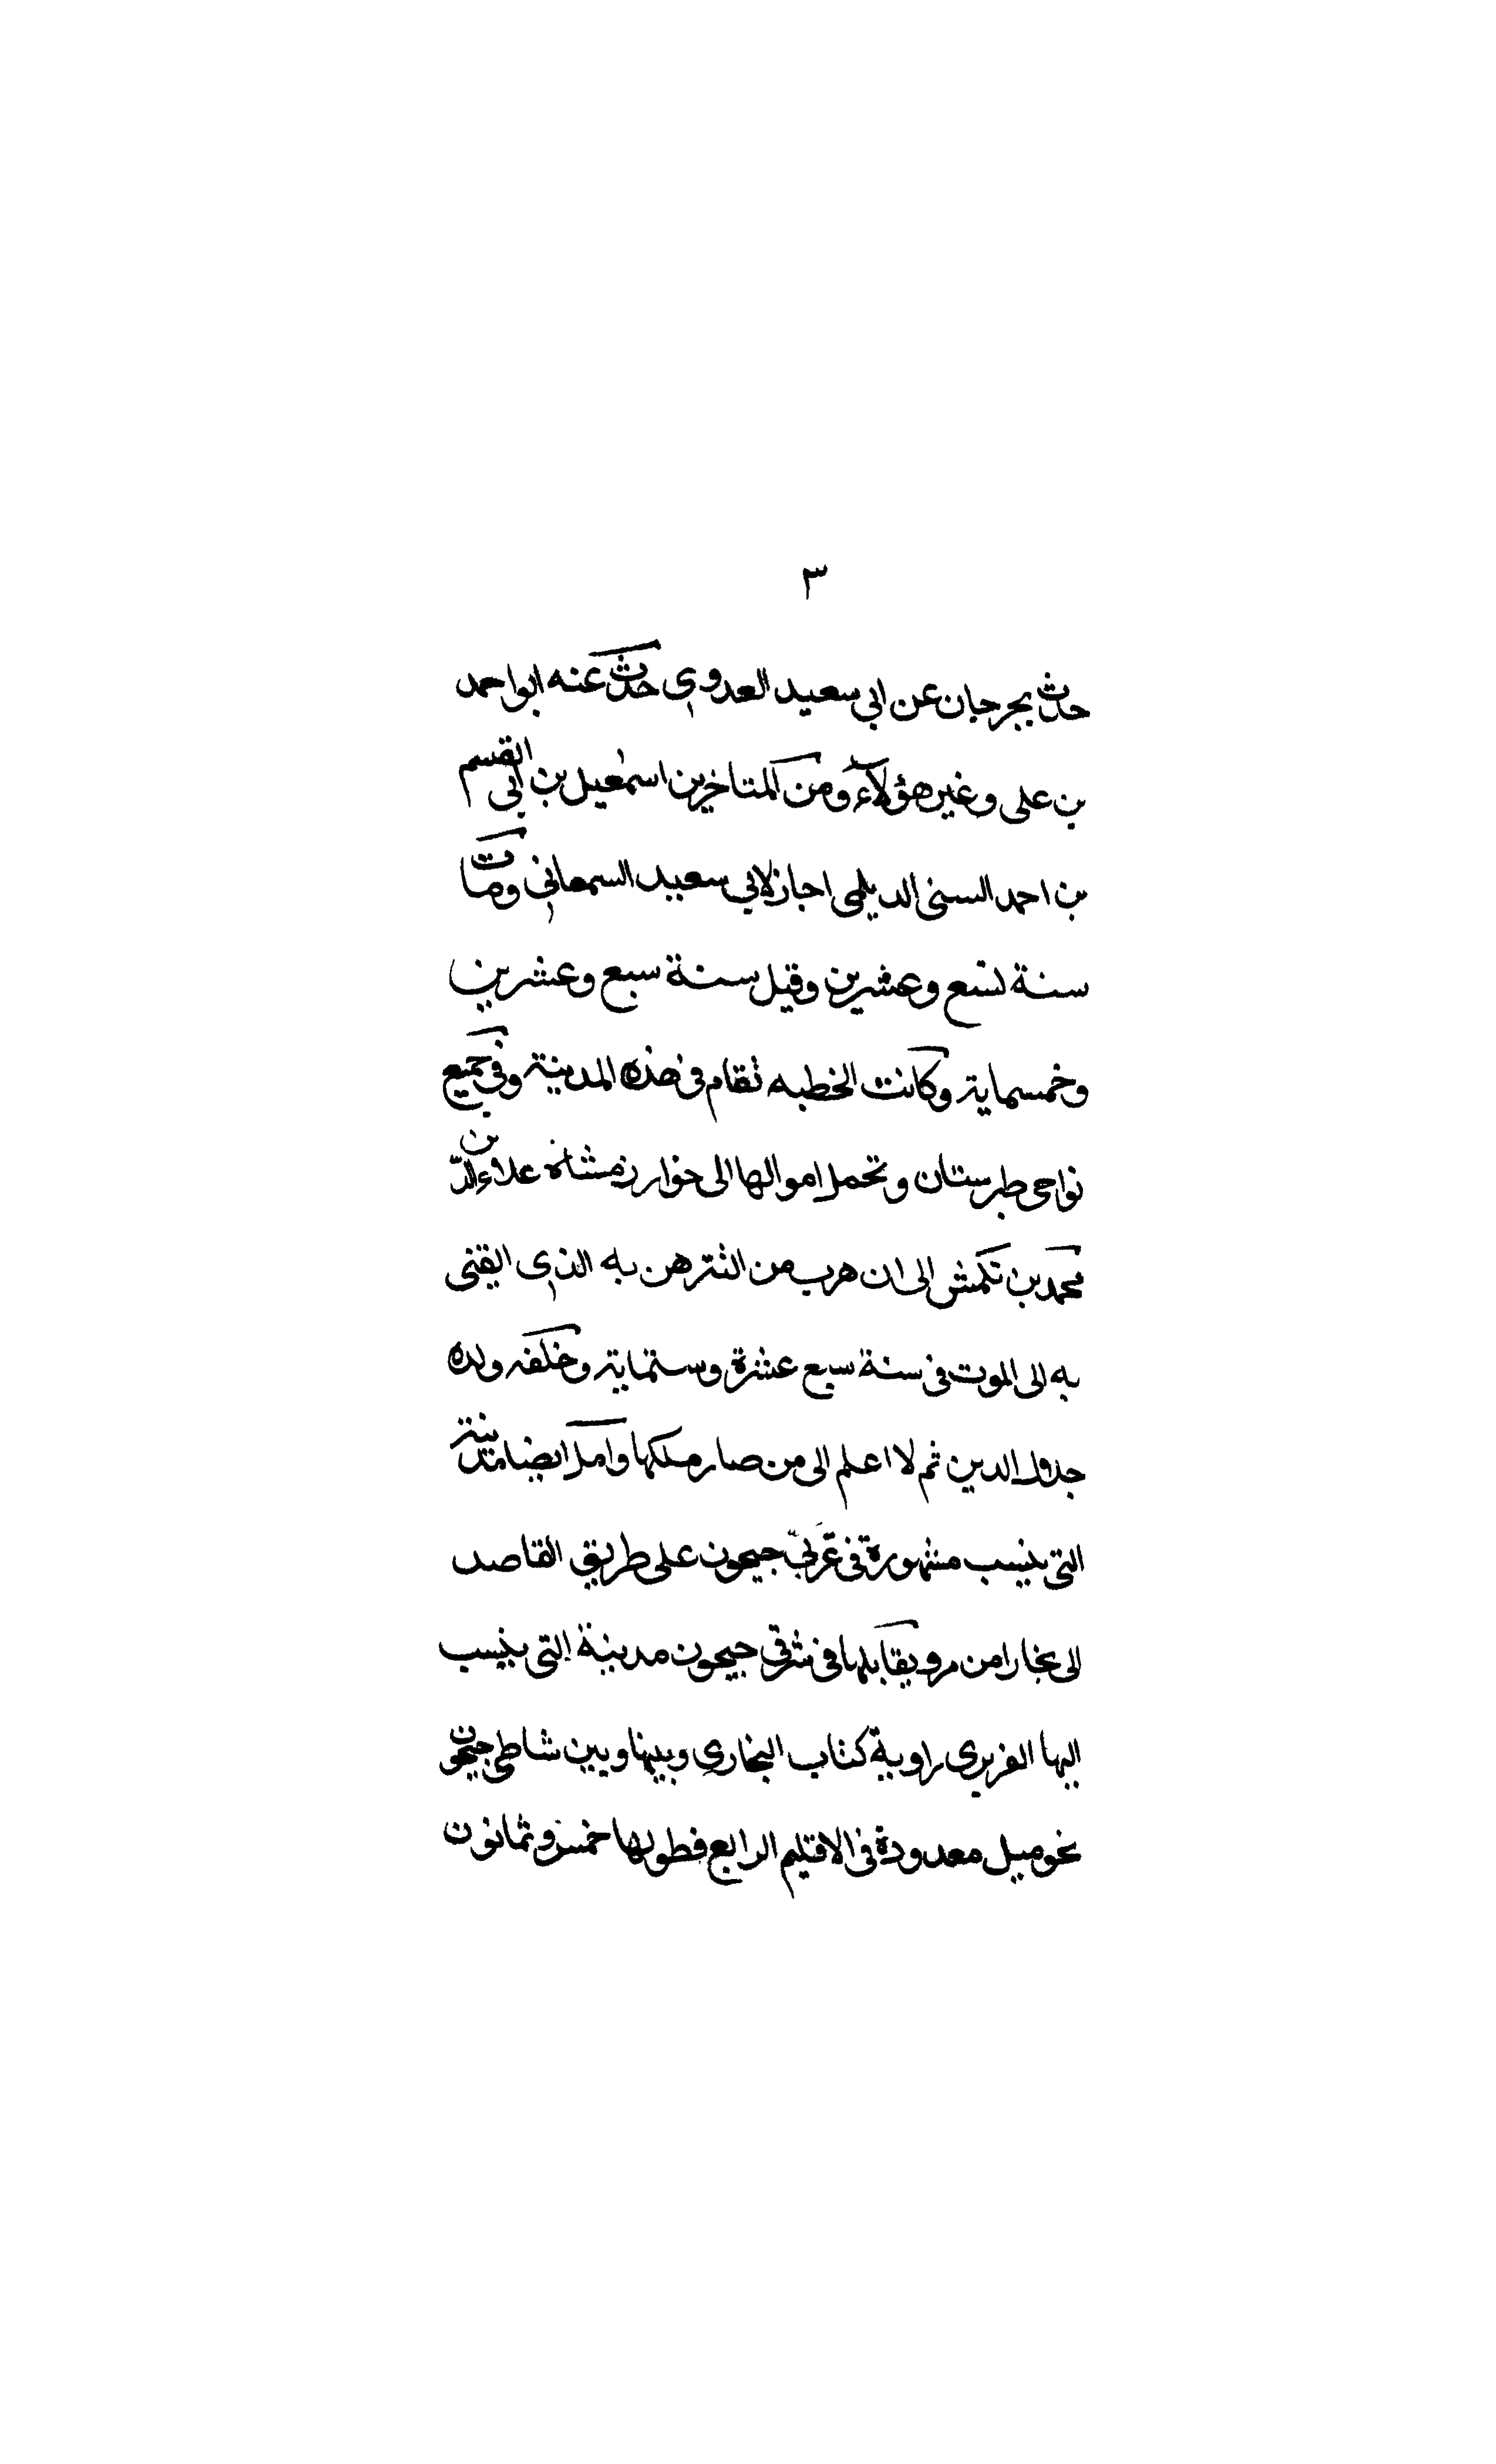 ٣
حدث بجرجان عن ابي سعيد العدوي حدث عنه ابو احمد
بن على وغير هؤلآء ومن المتاخرين اسمعيل بن ابي القسم
بن احمد السنى الديلمى اجاز لابي سعيد السمعاني ومات
سنة تسع وعشرين وقيل سنة سبع وعشرين
وخمسماية وكانت الخطبه تقام فى هذه المدينة وفى جميع
نواحى طبرستان وتحمل اموالها الى خوارزمشاه علاء الدين
محمد بن تكمش الى ان هرب من التتر هن به الذي القنى
به الى الموت فى سنة سبع عشرة وستماية وخلفه ولده
جلال الدين ثم لا اعلم الى من صار ملكها وامل ايضا مدينة
التى ينسب مشهورة فى غربيّ جيحون على طريق القاصد
الى بخارا من مرو يقابلها فى شرقى جيحون مدينة التى ينسب
اليها الفربرى راوية كتاب البخاري وبينها وبين شاطى جيحون
نحو ميل معدودة فى الاقليم الرابع فطولها خمس وثمانون